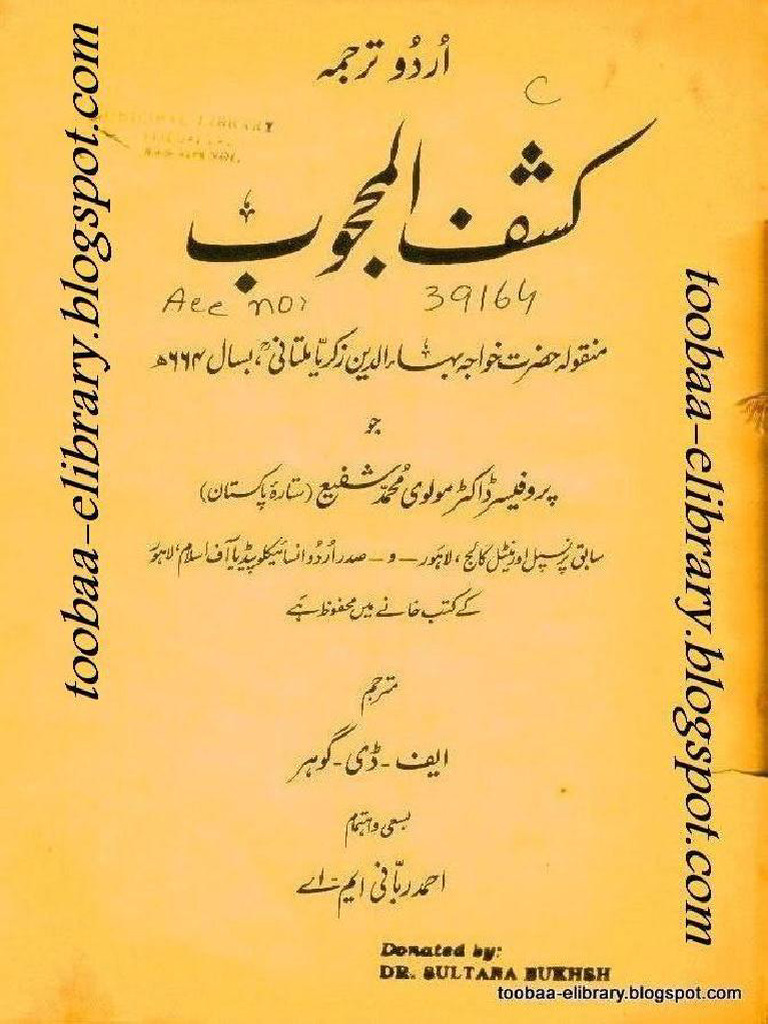 اُردُو ترجمہ
C
کشف المحجوب
Acc no: 39164
منقولہ حضرت خواجہ بہاء الدین زکریا ملتانیؒ، بسال ۶۶۴ھ
جو
پروفیسر ڈاکٹر مولوی محمّد شفیع (ستارۂ پاکستان)
سابق پرنسپل اورینٹل کالج، لاہور — و — صدر اُردُو انسائیکلوپیڈیا آف اسلام، لاہور
کے کتب خانے میں محفوظ ہے
مترجم
ایف - ڈی - گوہر
بسعی و اہتمام
احمد ربّانی ایم - اے
Donated by:
DR. SULTANA BUKHSH
toobaa-elibrary.blogspot.com
toobaa-elibrary.blogspot.com
toobaa-elibrary.blogspot.com